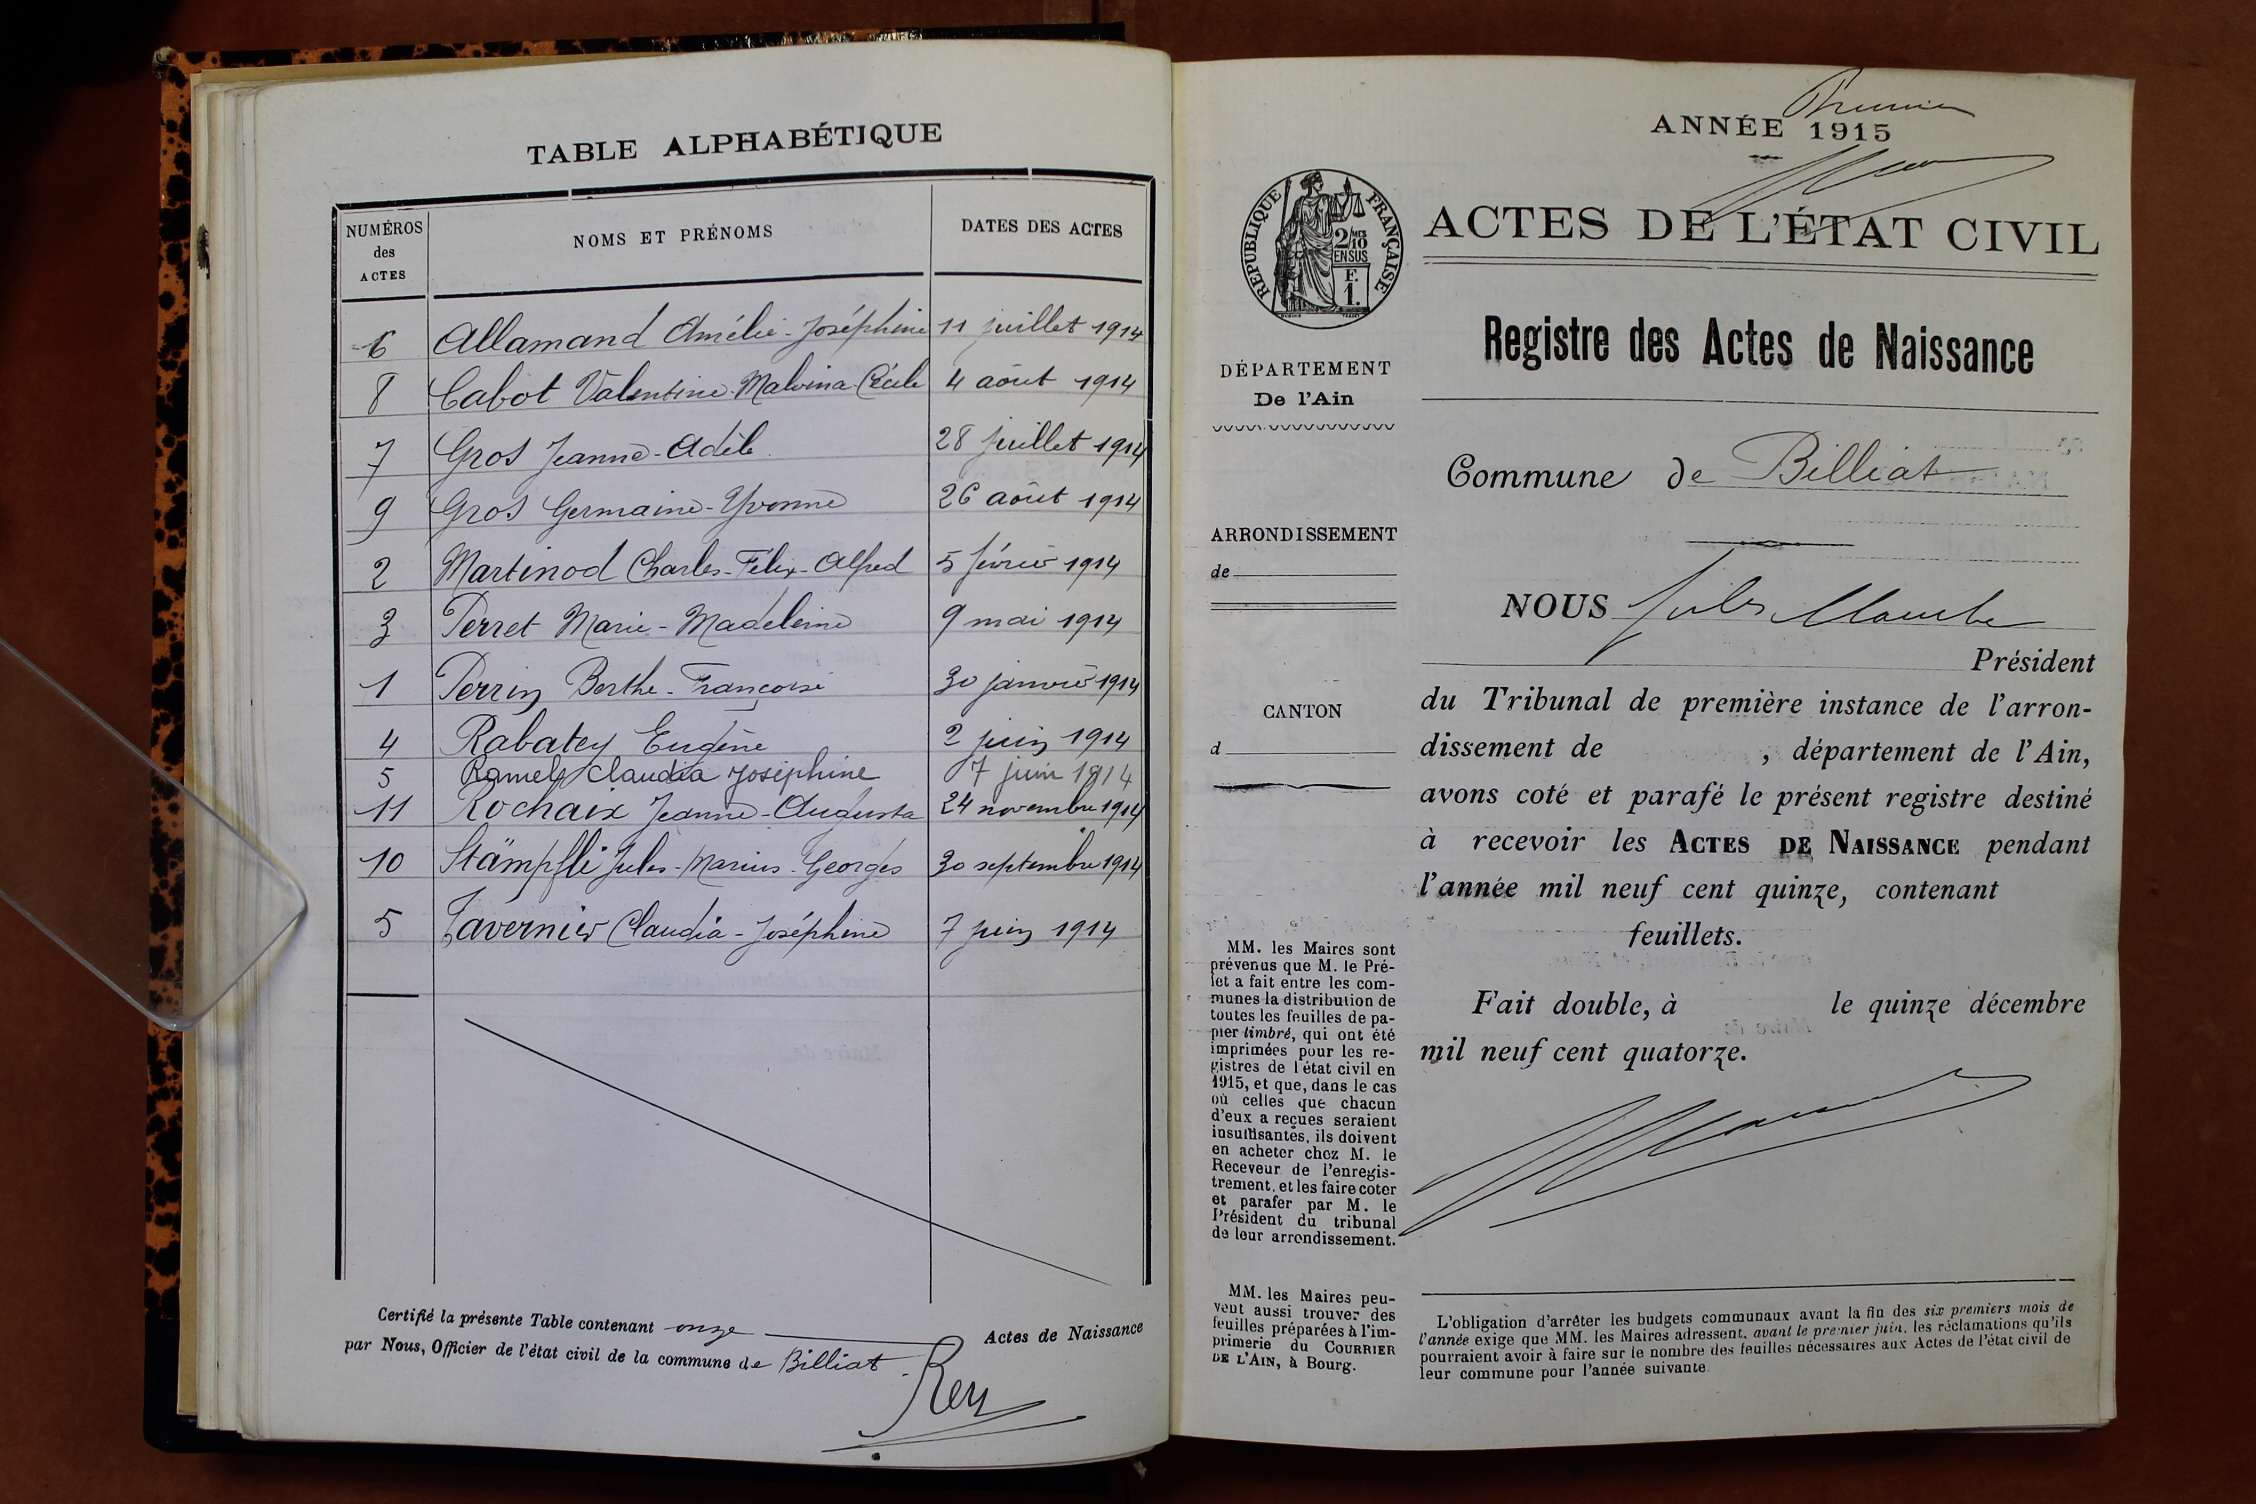 TABLE ALPHABÉTIQUE
NUMÉROS des ACTES
NOMS ET PRÉNOMS
DATES DES ACTES
6 Allamand Amélie-Joséphine 11 juillet 1914
8 Cabot Valentine-Malvina-Cécile 4 août 1914
7 Gros Jeanne-Adèle 28 juillet 1914
9 Gros Germaine-Yvonne 26 août 1914
2 Martinod Charles-Félix-Alfred 5 février 1914
3 Perret Marie-Madeleine 9 mai 1914
1 Perrin Berthe-Françoise 30 janvier 1914
4 Rabatey Eugène 2 juin 1914
5 Ramel Claudia Joséphine 7 juin 1914
11 Rochaix Jeanne-Augusta 24 novembre 1914
10 Stämpfli Jules-Marius-Georges 30 septembre 1914
5 Tavernier Claudia-Joséphine 7 juin 1914
Certifié la présente Table contenant onze Actes de Naissance
par Nous, Officier de l'état civil de la commune de Billiat.
Rey
Premier
ANNÉE 1915
RÉPUBLIQUE FRANÇAISE
2/10 EN SUS
F. 1.
ACTES DE L'ÉTAT CIVIL
Registre des Actes de Naissance
DÉPARTEMENT
De l'Ain
Commune de Billiat
ARRONDISSEMENT
de
NOUS Jules
Président
CANTON
d
du Tribunal de première instance de l'arron-
dissement de , département de l'Ain,
avons coté et parafé le présent registre destiné
à recevoir les ACTES DE NAISSANCE pendant
l'année mil neuf cent quinze, contenant
feuillets.
Fait double, à le quinze décembre
mil neuf cent quatorze.
MM. les Maires sont
prévenus que M. le Pré-
fet a fait entre les com-
munes la distribution de
toutes les feuilles de pa-
pier timbré, qui ont été
imprimées pour les re-
gistres de l'état civil en
1915, et que, dans le cas
où celles que chacun
d'eux a reçues seraient
insuffisantes, ils doivent
en acheter chez M. le
Receveur de l'enregis-
trement, et les faire coter
et parafer par M. le
Président du tribunal
de leur arrondissement.
MM. les Maires peu-
vent aussi trouver des
feuilles préparées à l'im-
primerie du COURRIER
DE L'AIN, à Bourg.
L'obligation d'arrêter les budgets communaux avant la fin des six premiers mois de
l'année exige que MM. les Maires adressent, avant le premier juin, les réclamations qu'ils
pourraient avoir à faire sur le nombre des feuilles nécessaires aux Actes de l'état civil de
leur commune pour l'année suivante.